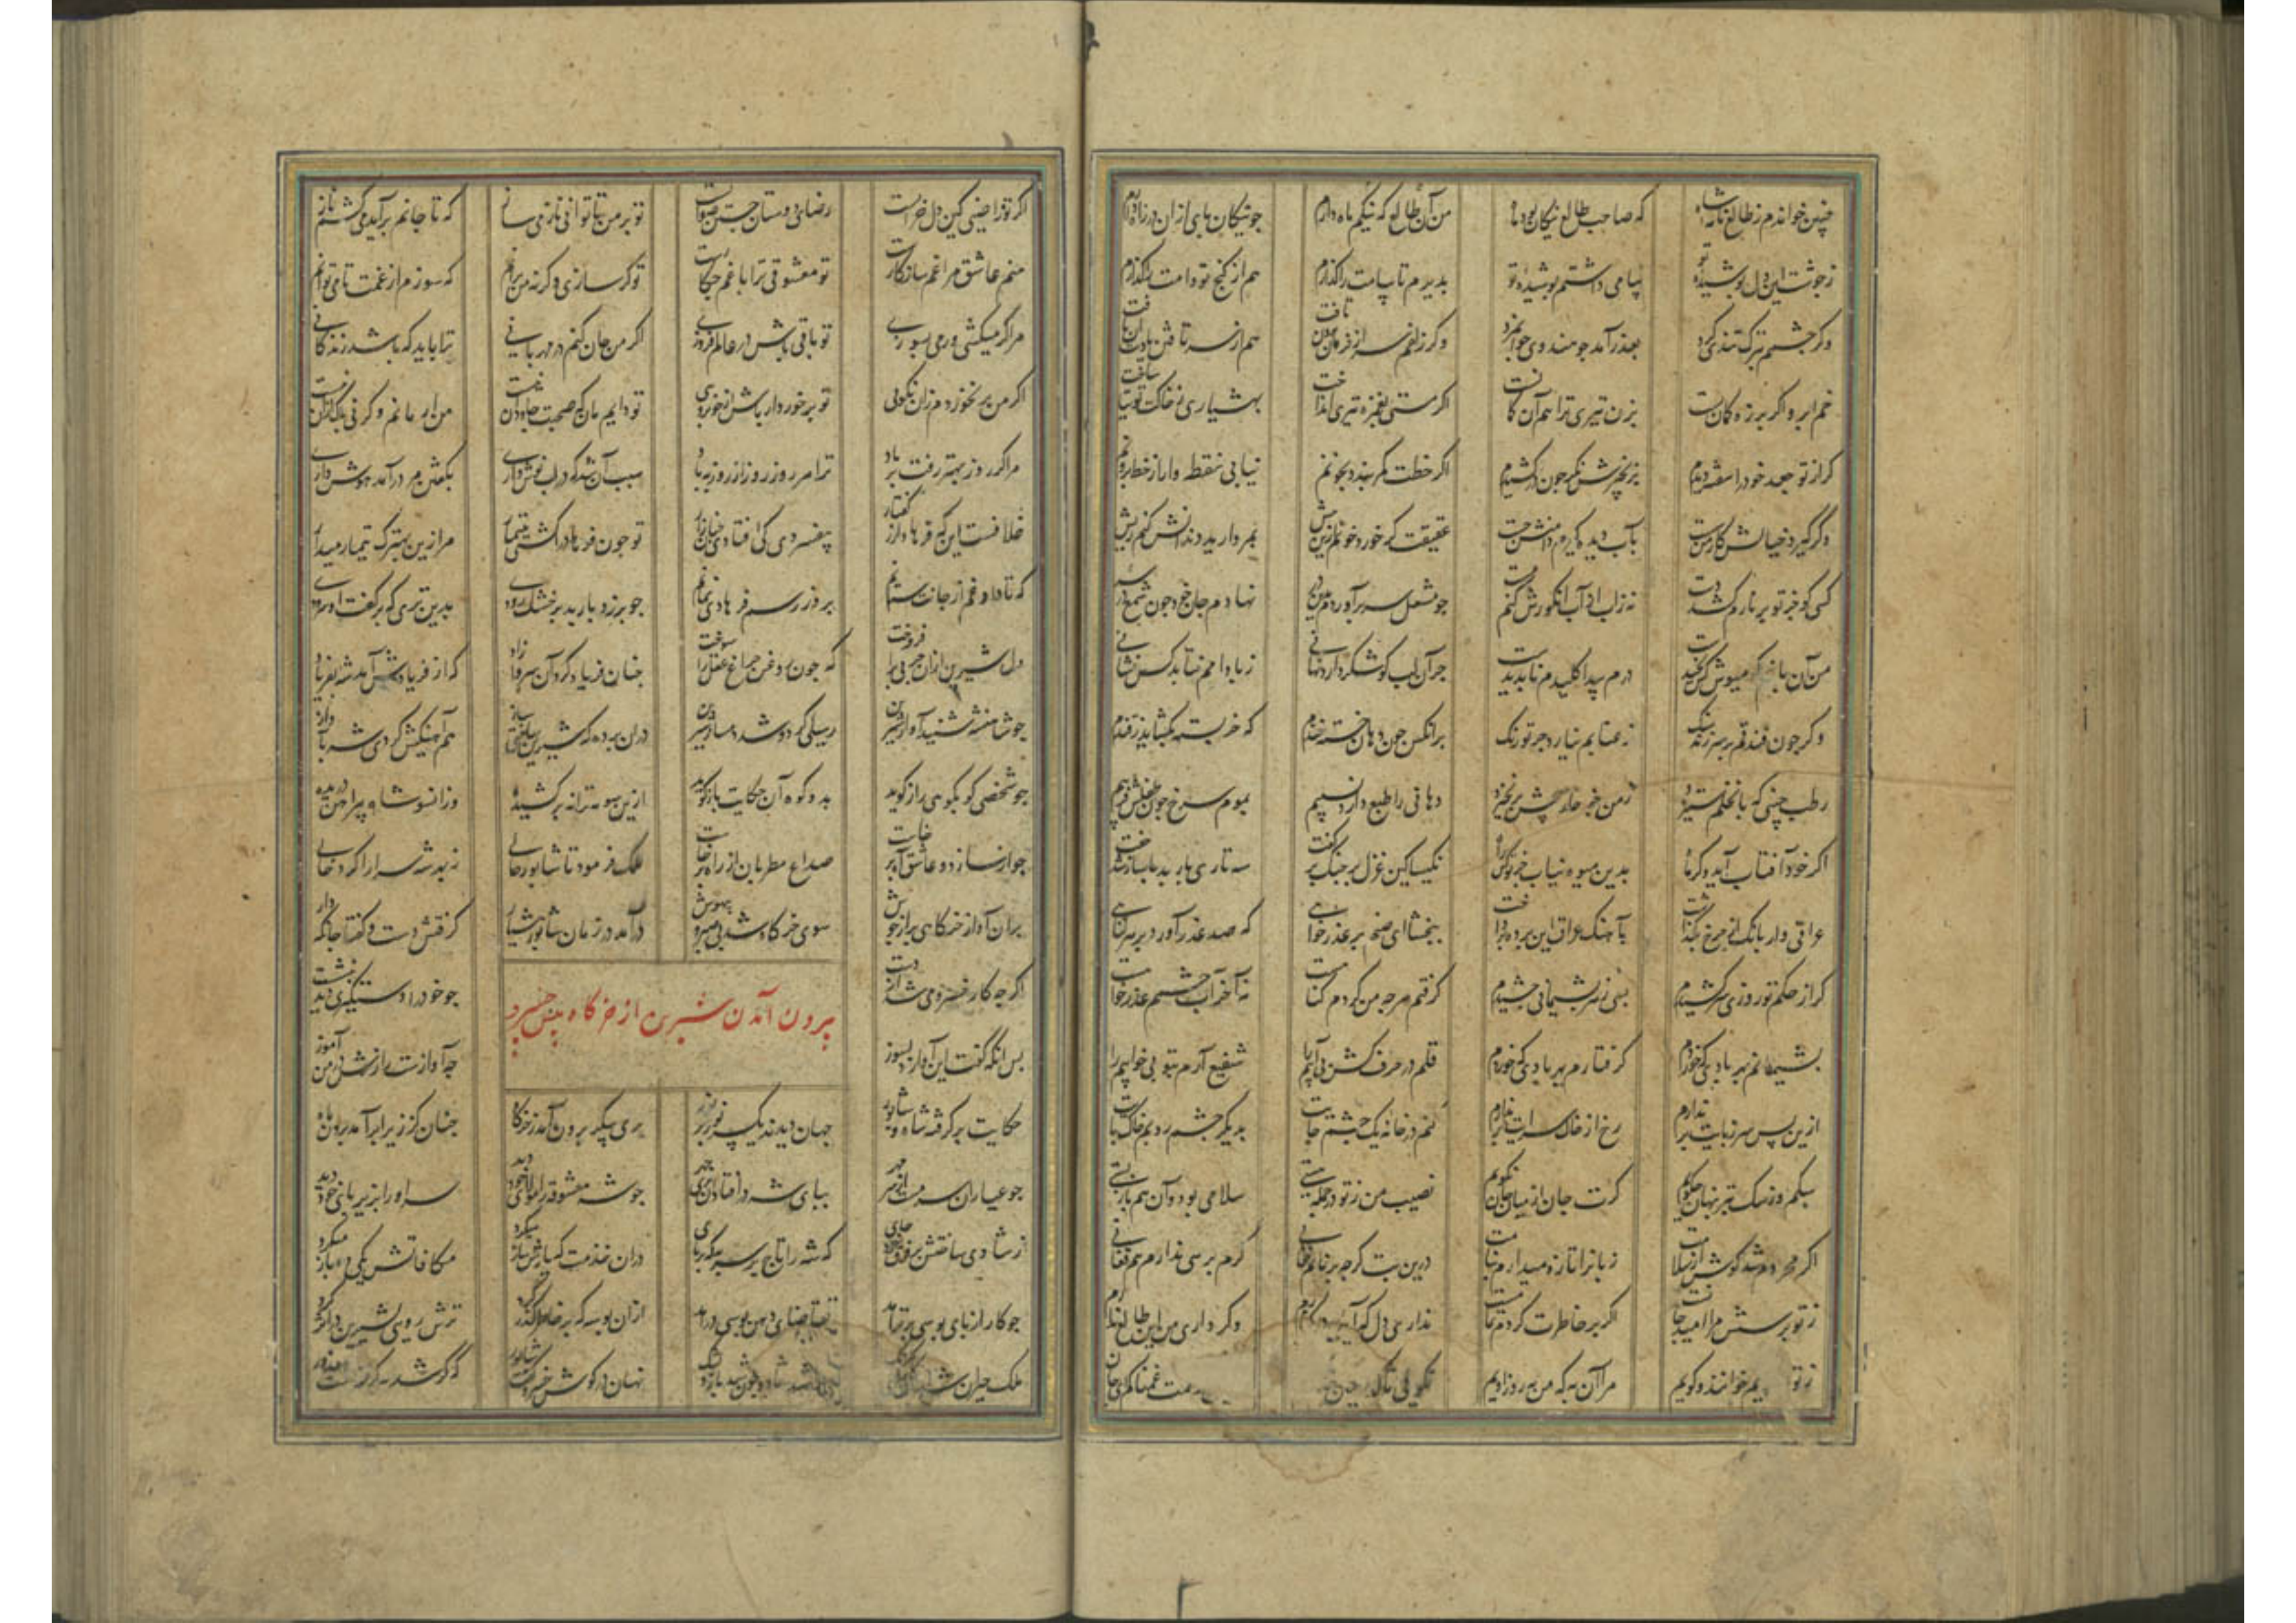 چنین خواندم ز طالع نامه شاه که صاحب طالع نیکان بود ماه من آن طالع که نیکم ماه دارم چو نیکان بای ازان در راه دارم
ز جوشت این دل جوشیده تو پیامی داشتم پوشیده تو بدیرم تا پیامت راگذارم هم از گنج تو وامت بازگذارم
وگر چشمم ز ترک تنکی کرد بعذر آمد چو هندوی جوانمرد وگر زلفم سر از فرمان من تافت هم از سر تافتن تاوان آن یافت
خم ابرو اگر بر زه کمان ساخت بزن تیری ترا هم آن کمان اگر مستی بغمزه تیری انداخت بهشیاری ز خاکت توتیا ساخت
گر از تو جعد خود را سفر دیدم بزنجیرش نگر چون درکشیدم اگر خطت کمر بندد بخونم نیابی نقطه وار از خط برونم
وگر گیرد خیالش کار من بآب دیده گیرم دامنش چست عقیقت گر خورد خونم ازین بیش بمروارید دندانش کنم ریش
کسی کو خبر تو بر نارم کشد دست نه زاب او آب انگورش کنم مست چو مشعل سر برآوردم بدین در نهادم جان خود چون شمع بر سر
من آن باغم که میوش کس نچید درم پیدا کلیدم ناپدید جز آن لب کو شکر دارد نهانی ز بادامم نیابد کس نشانی
وگر چون فندقم بر سر زند سنگ ز عنابم نیارد جز تو رنگ بر آنکس چون دهان بسته خندم که خر بسته بگشاید ز قندم
رطب چینی که با نخلم ستیزد ز من جز خار هیچش برنخیزد دهانی را طبع دارد نسیم بموم سرخ چون طفلش فریبم
اگر خود آفتاب آید وگر ماه بدین میوه نیابد جز تو کس راه نکیسا کین غزل بر چنگ برگفت سه تاری باربد با ساز شد جفت
عراقی وار بانک از چرخ بگذاشت بآهنگ عراق این پرده برداشت ببخشای ای صنم بر عذرخواهی که صد عذر آورد بر هر گناهی
گر از حکم تو روزی سر کشیدم بسی زهر پشیمانی چشیدم گرفتم هر چه من کردم گناهست نه آخر آب چشمم عذرخواهست
پشیمانم بهر بادی که خوردم گرفتارم بهر بادی که خوردم قلم در حرف کش بی آبیم را شفیع آرم بتو بی خوابیم را
ازین پس سر ز پایت بر ندارم رخ از خاک سرایت بر ندارم کنم در خانه یک چشم جایت بدیگر چشم روبم خاک پایت
سکم وز سک بتر پنهان نکویم گرت جان از میان جان نکویم نصیب من ز تو در جمله هستی سلامی بود و آن هم باز بستی
اگر محروم شد گوش از سلامت زبانرا تازه میدارم بنامت درین تب گرچه بر نارم فغانی گرم پرسی ندارم هم فغانی
ز تو پرسش مرا امید خامست اگر بر خاطرت گردم تمامست نداری دل که آیی بر کنارم وگر داری من این طالع ندارم
ز تو خوانند و گویم مرا آن به که من به روز اویم نکویی غمت غمناکم
اگر تو راضیی کین دل خرابست رضای دوستان جستن صوابست تو بر من تا توانی ناز میساز که تا جانم برآید می کشم ناز
منم عاشق مرا غم سازگارست تو معشوقی ترا با غم چکارست تو گر سازی وگرنه من برانم که سوزم از غمت تا می توانم
مرا گر میکشی ور می بسوزی تو باقی باش در عالم فروزی اگر من جان کنم در مهربانی ترا باید که باشد زندکانی
اگر من بر نخوردم زان نکویی تو برخوردار باش از خوبرویی تو دایم مان که صحبت جاودان نیست من ار مانم وگر نی باک ازان نیست
مرا گر روز بهتر رفت بر باد ترا هر روز روز از روز به باد سبب آن شد که در لب نوش داری بگفتن مر درآمد هوش داری
خلافست این که فرهاد ار گفتار بیفسردی کی افتادی چنین زار تو چون فرهاد را گشتی بتیمار مرا زین بهترک تیمار میدار
که تا داد و غم از جانت ستانم بروز رسم فرهادی نمانم چو بر زد باربد بر خشک رودی بدین تری که برگفت او سرودی
دل شیرین ازان چربی برافروخت که چون روغن چراغ عقل را سوخت چنان فریاد کرد آن سرو آزاد که از فریادش آمد شه بفریاد
چو شاهنشه شنید آواز شیرین رسیلی کرد و شد دمساز شیرین دران پرده که شیرین ساختی ساز هم آهنگیش کردی شه بآواز
چو شخصی کو بکوهی راز گوید بدو کوه آن حکایت باز گوید ازین سو مه ترانه برکشیده وزان سو شاه پیراهن دریده
چو از ساز دو عاشق آه برخاست صداع مطربان از راه برخاست ملک فرمود تا شاپور حالی ز بد شه سرا را کرد خالی
بران آواز خرکاهی پر از جوش سوی خرگاه شد بی صبر و بیهوش درآمد در زمان شاپور هشیار گرفتش دست و گفتا جا نگه دار
اگر چه کار خسرو می شد از دست چو خود را دستگیری دید بنشست
بیرون آمدن شیرین از خرگاه پیش خسرو
پس آنکه گفت این آواز دلسوز چه آوازست رازش در من آموز
حکایت برگرفته شاه و شاپور جهان دیدند یکسر نور در نور پری پیکر برون آمد ز خرگاه چنان کز زیر ابر آمد برون ماه
چو عیاران سرمست از سر مهر بپای شه در افتاد آن پری چهر چو شه معشوقه را مولای خود دید سر او را بزیر پای خود دید
ز شادی ساختش بر فرق خود جای که شه را تاج بر سر به که در پای دران خدمت که یارش ساز میکرد مکافاتش یکی ده باز میکرد
چو کار از پای بوسی برتر آمد تقاضای دهن بوسی درآمد ازان بوسه که بر خاطر گذر کرد ترش روی شیرین در اثر کرد
ملک حیران شده نهان در گوش خسرو گفت شاپور که گر شه گرفت معذور